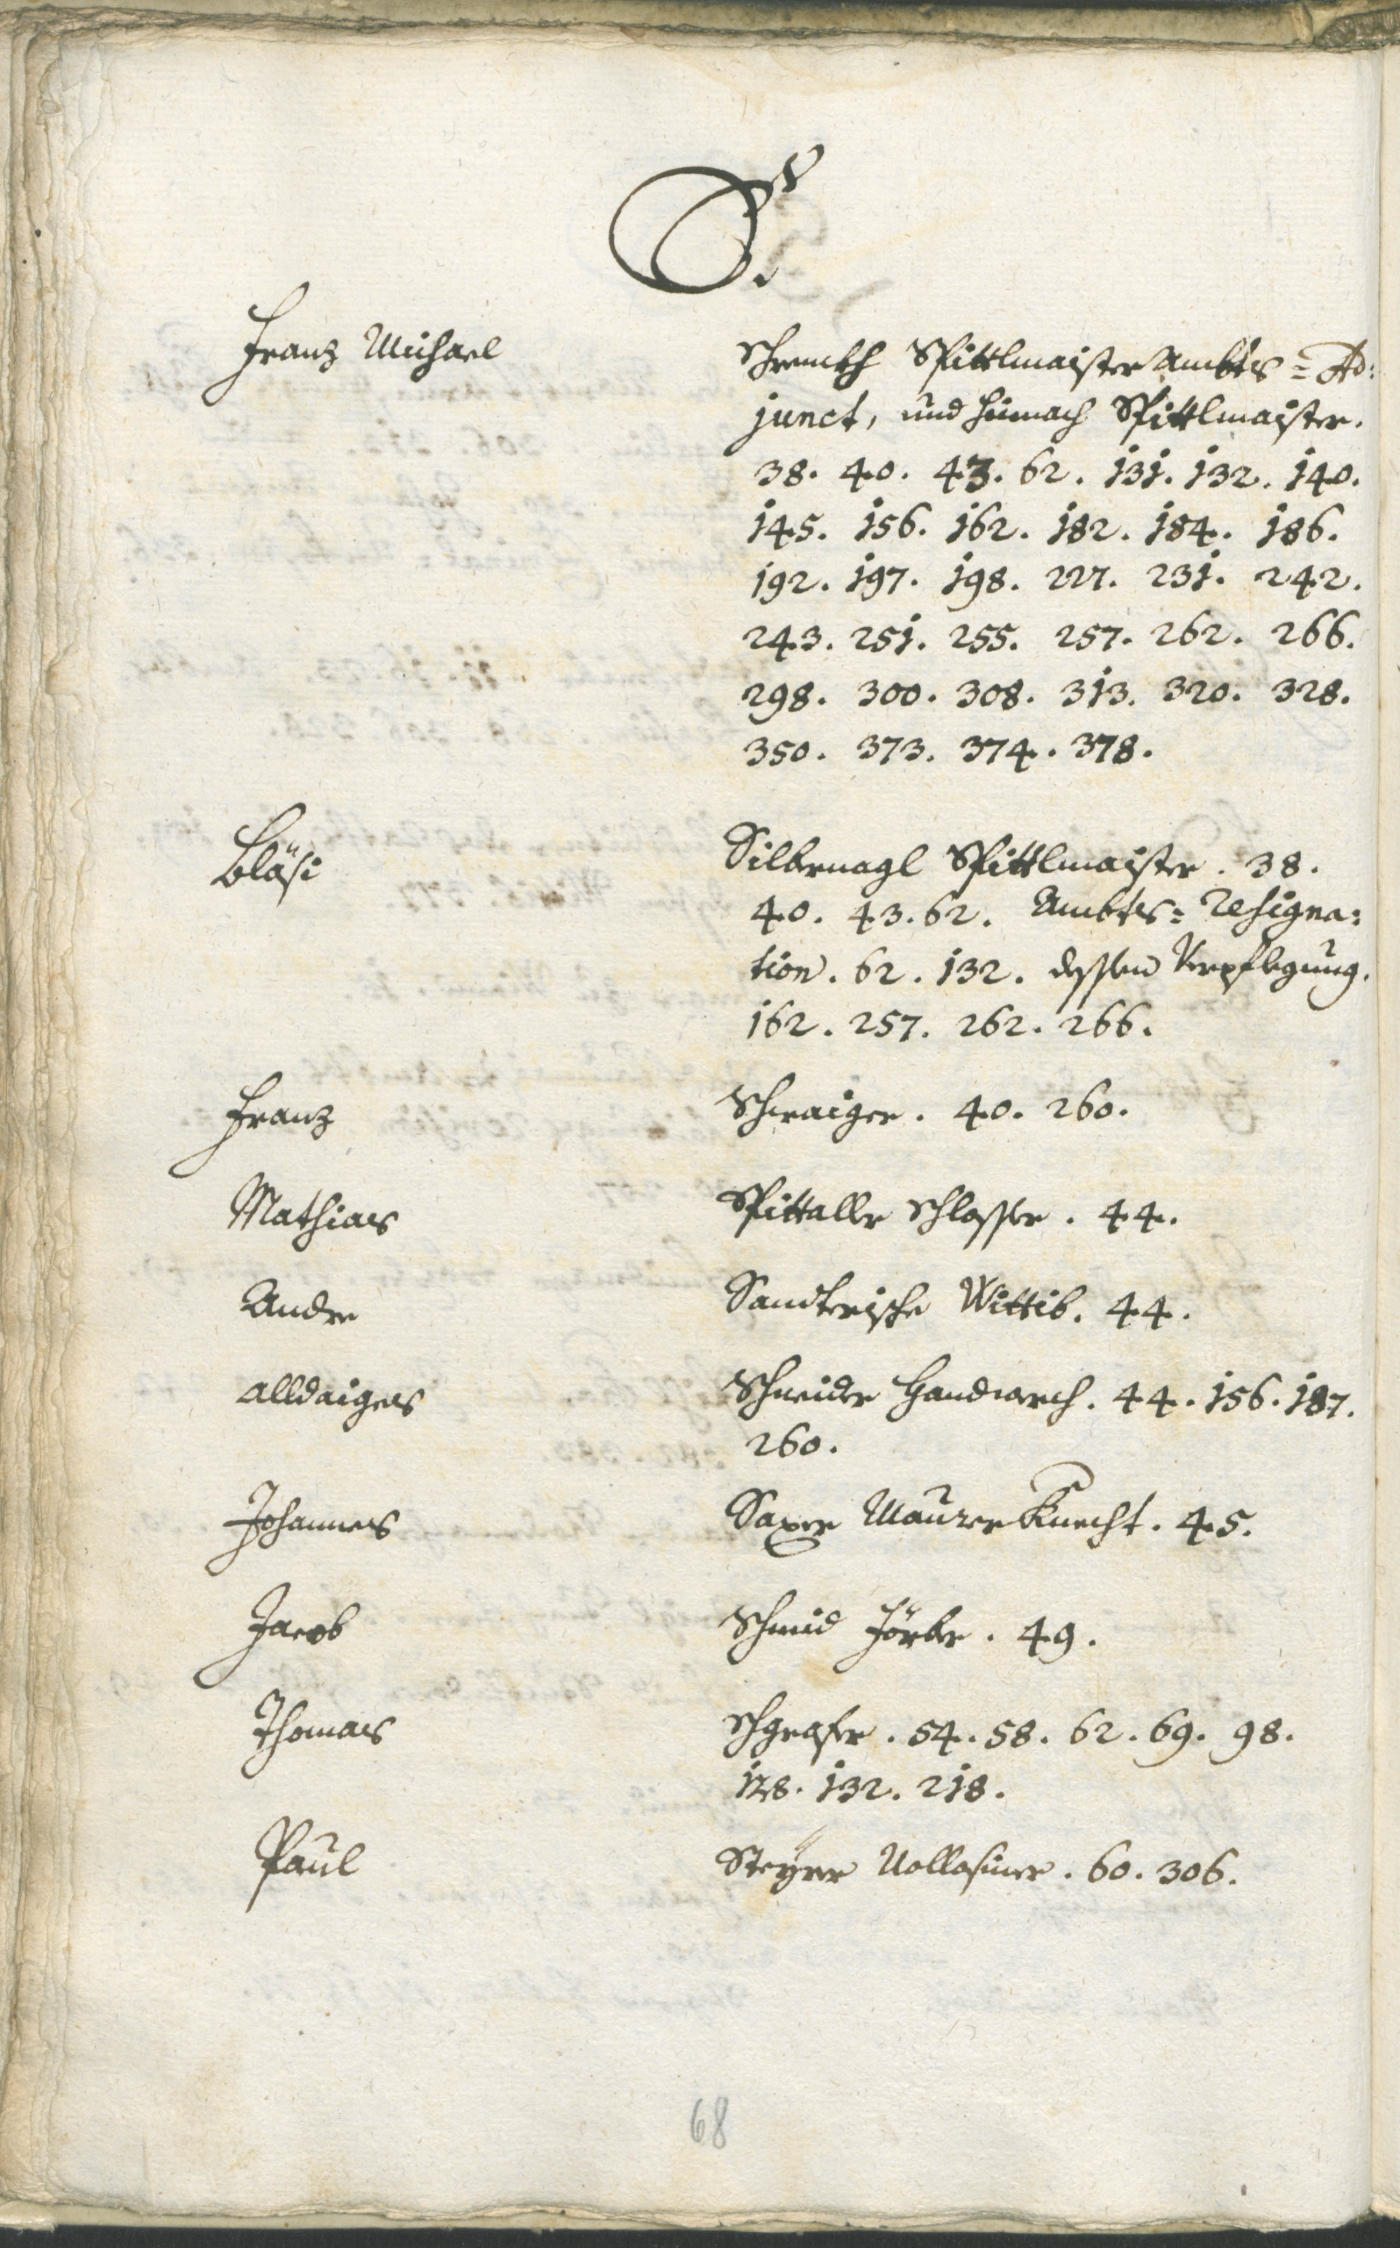 S.
Franz Michael Schrenckh Spittlmaister Ambts= Ad:
junct, und hernach Spittlmaister.
38. 40. 43. 62. 131. 132. 140.
145. 156. 162. 182. 184. 186.
192. 197. 198. 227. 231. 242.
243. 251. 255. 257. 262. 266.
298. 300. 308. 313. 320. 328.
350. 373. 374. 378.
Bläsi Silbernagl Spittlmaister. 38.
40. 43. 62. Ambts= Resigna:
tion. 62. 132. dessen Verpflegung.
162. 257. 262. 266.
Franz Schraiger. 40. 260.
Mathias Spittaller Schlosser. 44.
Andre Sandterische Wittib. 44.
alldaiges Schneider Handwerch. 44. 156. 187.
260.
Johannes Saxer Maurer Knecht. 45.
Jacob Schmid Förber. 49.
Thomas Schgraffer. 54. 58. 62. 69. 98.
128. 132. 218.
Paul Steÿrer 60. 306.
68